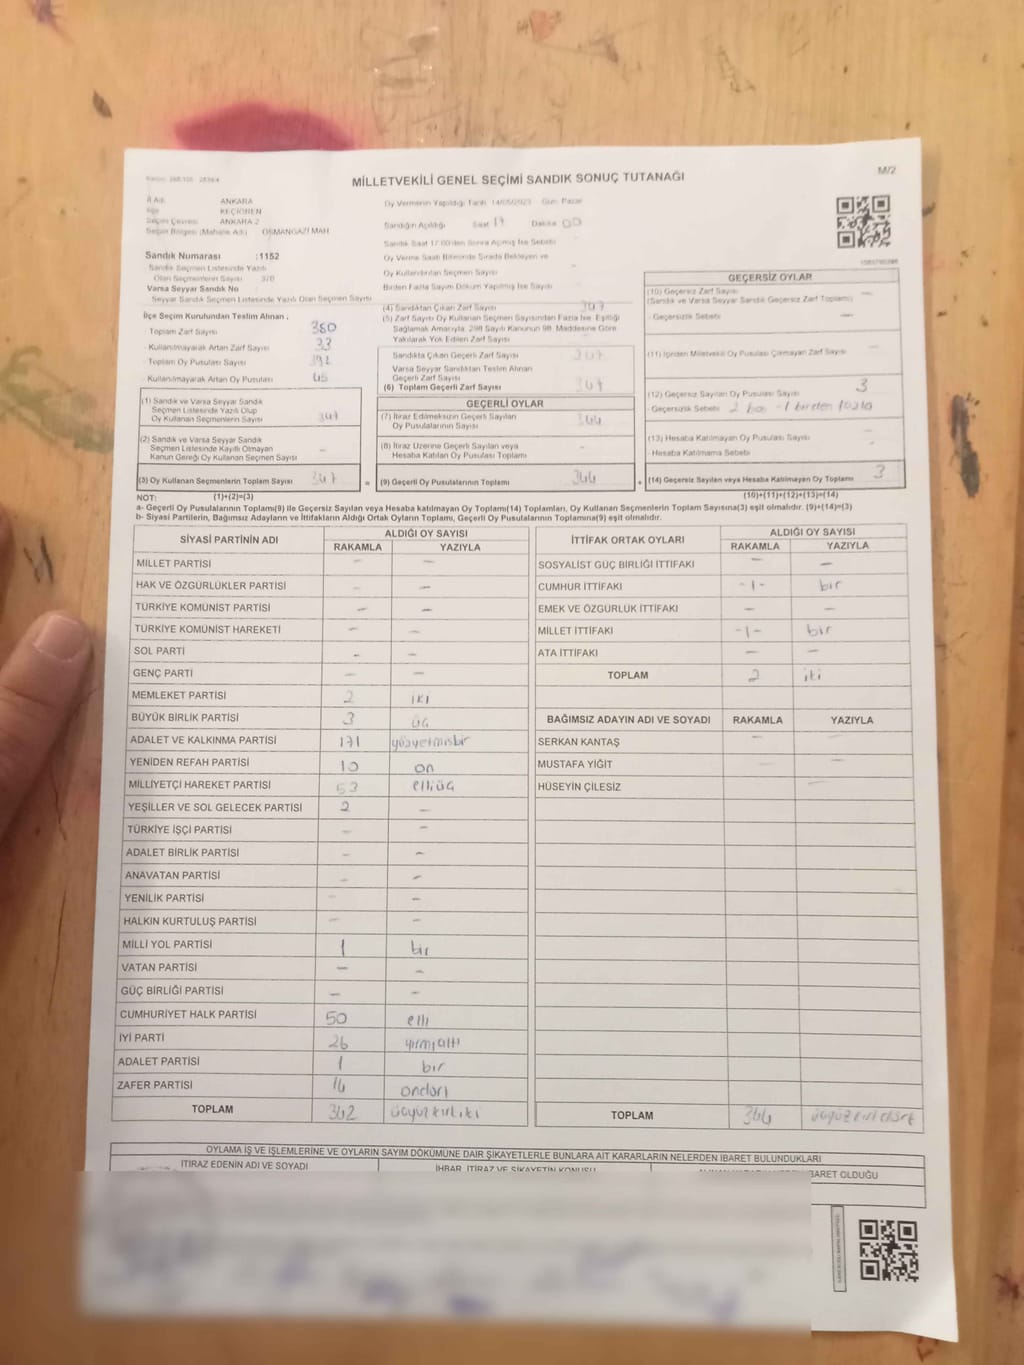 MİLLETVEKİLİ GENEL SEÇİMİ SANDIK SONUÇ TUTANAĞI
M/2
İl Adı ANKARA
İlçe KEÇİÖREN
Seçim Çevresi ANKARA 2
Seçim Bölgesi (Mahalle Adı) OSMANGAZİ MAH
Sandık Numarası :1152
Sandık Seçmen Listesinde Yazılı
Olan Seçmenlerin Sayısı 370
Varsa Seyyar Sandık No
Seyyar Sandık Seçmen Listesinde Yazılı Olan Seçmen Sayısı
Oy Vermenin Yapıldığı Tarih 14/05/2023 Gün Pazar
Sandığın Açıldığı Saat 17 Dakika 00
Sandık Saat 17.00'den Sonra Açılmış İse Sebebi
Oy Verme Saati Bitiminde Sırada Bekleyen ve
Oy Kullandırılan Seçmen Sayısı
Birden Fazla Sayım Döküm Yapılmış İse Sayısı
İlçe Seçim Kurulundan Teslim Alınan ;
- Toplam Zarf Sayısı 380
- Kullanılmayarak Artan Zarf Sayısı 33
- Toplam Oy Pusulası Sayısı 392
- Kullanılmayarak Artan Oy Pusulası 45
(1) Sandık ve Varsa Seyyar Sandık
Seçmen Listesinde Yazılı Olup
Oy Kullanan Seçmenlerin Sayısı 347
(2) Sandık ve Varsa Seyyar Sandık
Seçmen Listesinde Kayıtlı Olmayan
Kanun Gereği Oy Kullanan Seçmen Sayısı -
(3) Oy Kullanan Seçmenlerin Toplam Sayısı 347 =
(4) Sandıktan Çıkan Zarf Sayısı 347
(5) Zarf Sayısı Oy Kullanan Seçmen Sayısından Fazla İse, Eşitliği
Sağlamak Amacıyla, 298 Sayılı Kanunun 98. Maddesine Göre
Yakılarak Yok Edilen Zarf Sayısı
Sandıkta Çıkan Geçerli Zarf Sayısı 347
Varsa Seyyar Sandıktan Teslim Alınan
Geçerli Zarf Sayısı
(6) Toplam Geçerli Zarf Sayısı 347
GEÇERLİ OYLAR
(7) İtiraz Edilmeksizin Geçerli Sayılan
Oy Pusulalarının Sayısı 344
(8) İtiraz Üzerine Geçerli Sayılan veya
Hesaba Katılan Oy Pusulası Toplamı -
(9) Geçerli Oy Pusulalarının Toplamı 344 +
GEÇERSİZ OYLAR
(10) Geçersiz Zarf Sayısı -
(Sandık ve Varsa Seyyar Sandık Geçersiz Zarf Toplamı)
- Geçersizlik Sebebi -
(11) İçinden Milletvekili Oy Pusulası Çıkmayan Zarf Sayısı -
(12) Geçersiz Sayılan Oy Pusulası Sayısı 3
- Geçersizlik Sebebi 2 boş - 1 birden fazla
(13) Hesaba Katılmayan Oy Pusulası Sayısı -
- Hesaba Katılmama Sebebi -
(14) Geçersiz Sayılan veya Hesaba Katılmayan Oy Toplamı 3
NOT: (1)+(2)=(3) (10)+(11)+(12)+(13)=(14)
a- Geçerli Oy Pusulalarının Toplamı(9) ile Geçersiz Sayılan veya Hesaba katılmayan Oy Toplamı(14) Toplamları, Oy Kullanan Seçmenlerin Toplam Sayısına(3) eşit olmalıdır. (9)+(14)=(3)
b- Siyasi Partilerin, Bağımsız Adayların ve İttifakların Aldığı Ortak Oyların Toplamı, Geçerli Oy Pusulalarının Toplamına(9) eşit olmalıdır.
SİYASİ PARTİNİN ADI ALDIĞI OY SAYISI
RAKAMLA YAZIYLA
MİLLET PARTİSİ - -
HAK VE ÖZGÜRLÜKLER PARTİSİ - -
TÜRKİYE KOMÜNİST PARTİSİ - -
TÜRKİYE KOMÜNİST HAREKETİ - -
SOL PARTİ - -
GENÇ PARTİ - -
MEMLEKET PARTİSİ 2 iki
BÜYÜK BİRLİK PARTİSİ 3 üç
ADALET VE KALKINMA PARTİSİ 171 yüzyetmişbir
YENİDEN REFAH PARTİSİ 10 on
MİLLİYETÇİ HAREKET PARTİSİ 53 elliüç
YEŞİLLER VE SOL GELECEK PARTİSİ 2 -
TÜRKİYE İŞÇİ PARTİSİ - -
ADALET BİRLİK PARTİSİ - -
ANAVATAN PARTİSİ - -
YENİLİK PARTİSİ - -
HALKIN KURTULUŞ PARTİSİ - -
MİLLİ YOL PARTİSİ 1 bir
VATAN PARTİSİ - -
GÜÇ BİRLİĞİ PARTİSİ - -
CUMHURİYET HALK PARTİSİ 50 elli
İYİ PARTİ 26 yirmialtı
ADALET PARTİSİ 1 bir
ZAFER PARTİSİ 14 ondört
TOPLAM 342 üçyüzkırkiki
İTTİFAK ORTAK OYLARI ALDIĞI OY SAYISI
RAKAMLA YAZIYLA
SOSYALİST GÜÇ BİRLİĞİ İTTİFAKI - -
CUMHUR İTTİFAKI -1- bir
EMEK VE ÖZGÜRLÜK İTTİFAKI - -
MİLLET İTTİFAKI -1- bir
ATA İTTİFAKI - -
TOPLAM 2 iki
BAĞIMSIZ ADAYIN ADI VE SOYADI RAKAMLA YAZIYLA
SERKAN KANTAŞ - -
MUSTAFA YİĞİT - -
HÜSEYİN ÇİLESİZ -
TOPLAM 344 üçyüzkırkdört
OYLAMA İŞ VE İŞLEMLERİNE VE OYLARIN SAYIM DÖKÜMÜNE DAİR ŞİKAYETLERLE BUNLARA AİT KARARLARIN NELERDEN İBARET BULUNDUKLARI
İTİRAZ EDENİN ADI VE SOYADI İHBAR, İTİRAZ VE ŞİKAYETİN KONUSU İBARET OLDUĞU